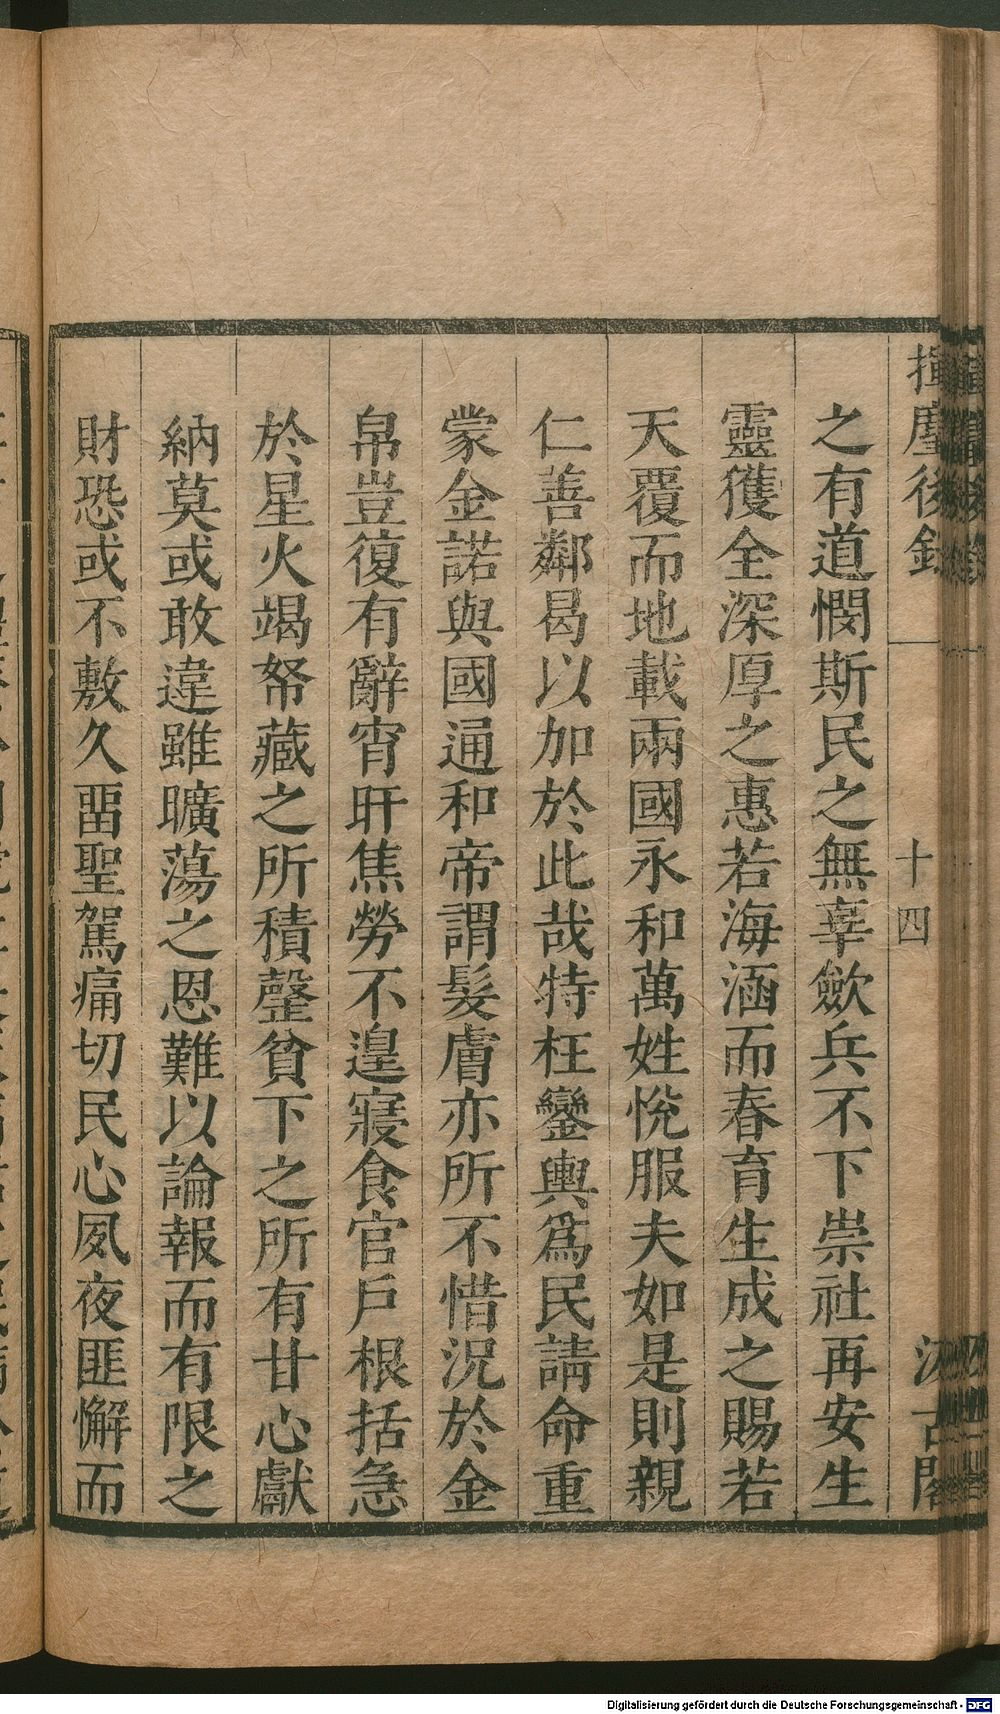 揮麈後錄
十四
汲古閣
之有道憫斯民之無辜歛兵不下崇社再安生
靈獲全深厚之惠若海涵而春育生成之賜若
天覆而地載兩國永和萬姓悅服夫如是則親
仁善鄰曷以加於此哉特枉鑾輿爲民請命重
蒙金諾與國通和帝謂髮膚亦所不惜況於金
帛豈復有辭宵旰焦勞不遑寢食官戶根括急
於星火竭帑藏之所積罄貧下之所有甘心獻
納莫或敢違雖曠蕩之恩難以論報而有限之
財恐或不敷久畱聖駕痛切民心夙夜匪懈而
Digitalisierung gefördert durch die Deutsche Forschungsgemeinschaft - DFG